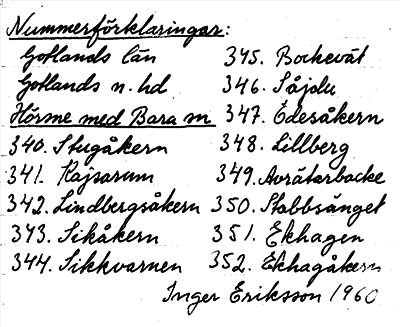 Nummerförklaringar:
Gotlands län
Gotlands n. hd
Hörsne med Bara sn
340. Stugåkern
341. Rajsarum
342. Lindbergsåkern
343. Sikåkern
344. Sikkvarnen
345. Bockevät
346. Såjdu
347. Edesåkern
348. Lillberg
349. Avrätarbacke
350. Stabbsänget
351. Ekhagen
352. Ekhagåkern
Inger Eriksson 1960